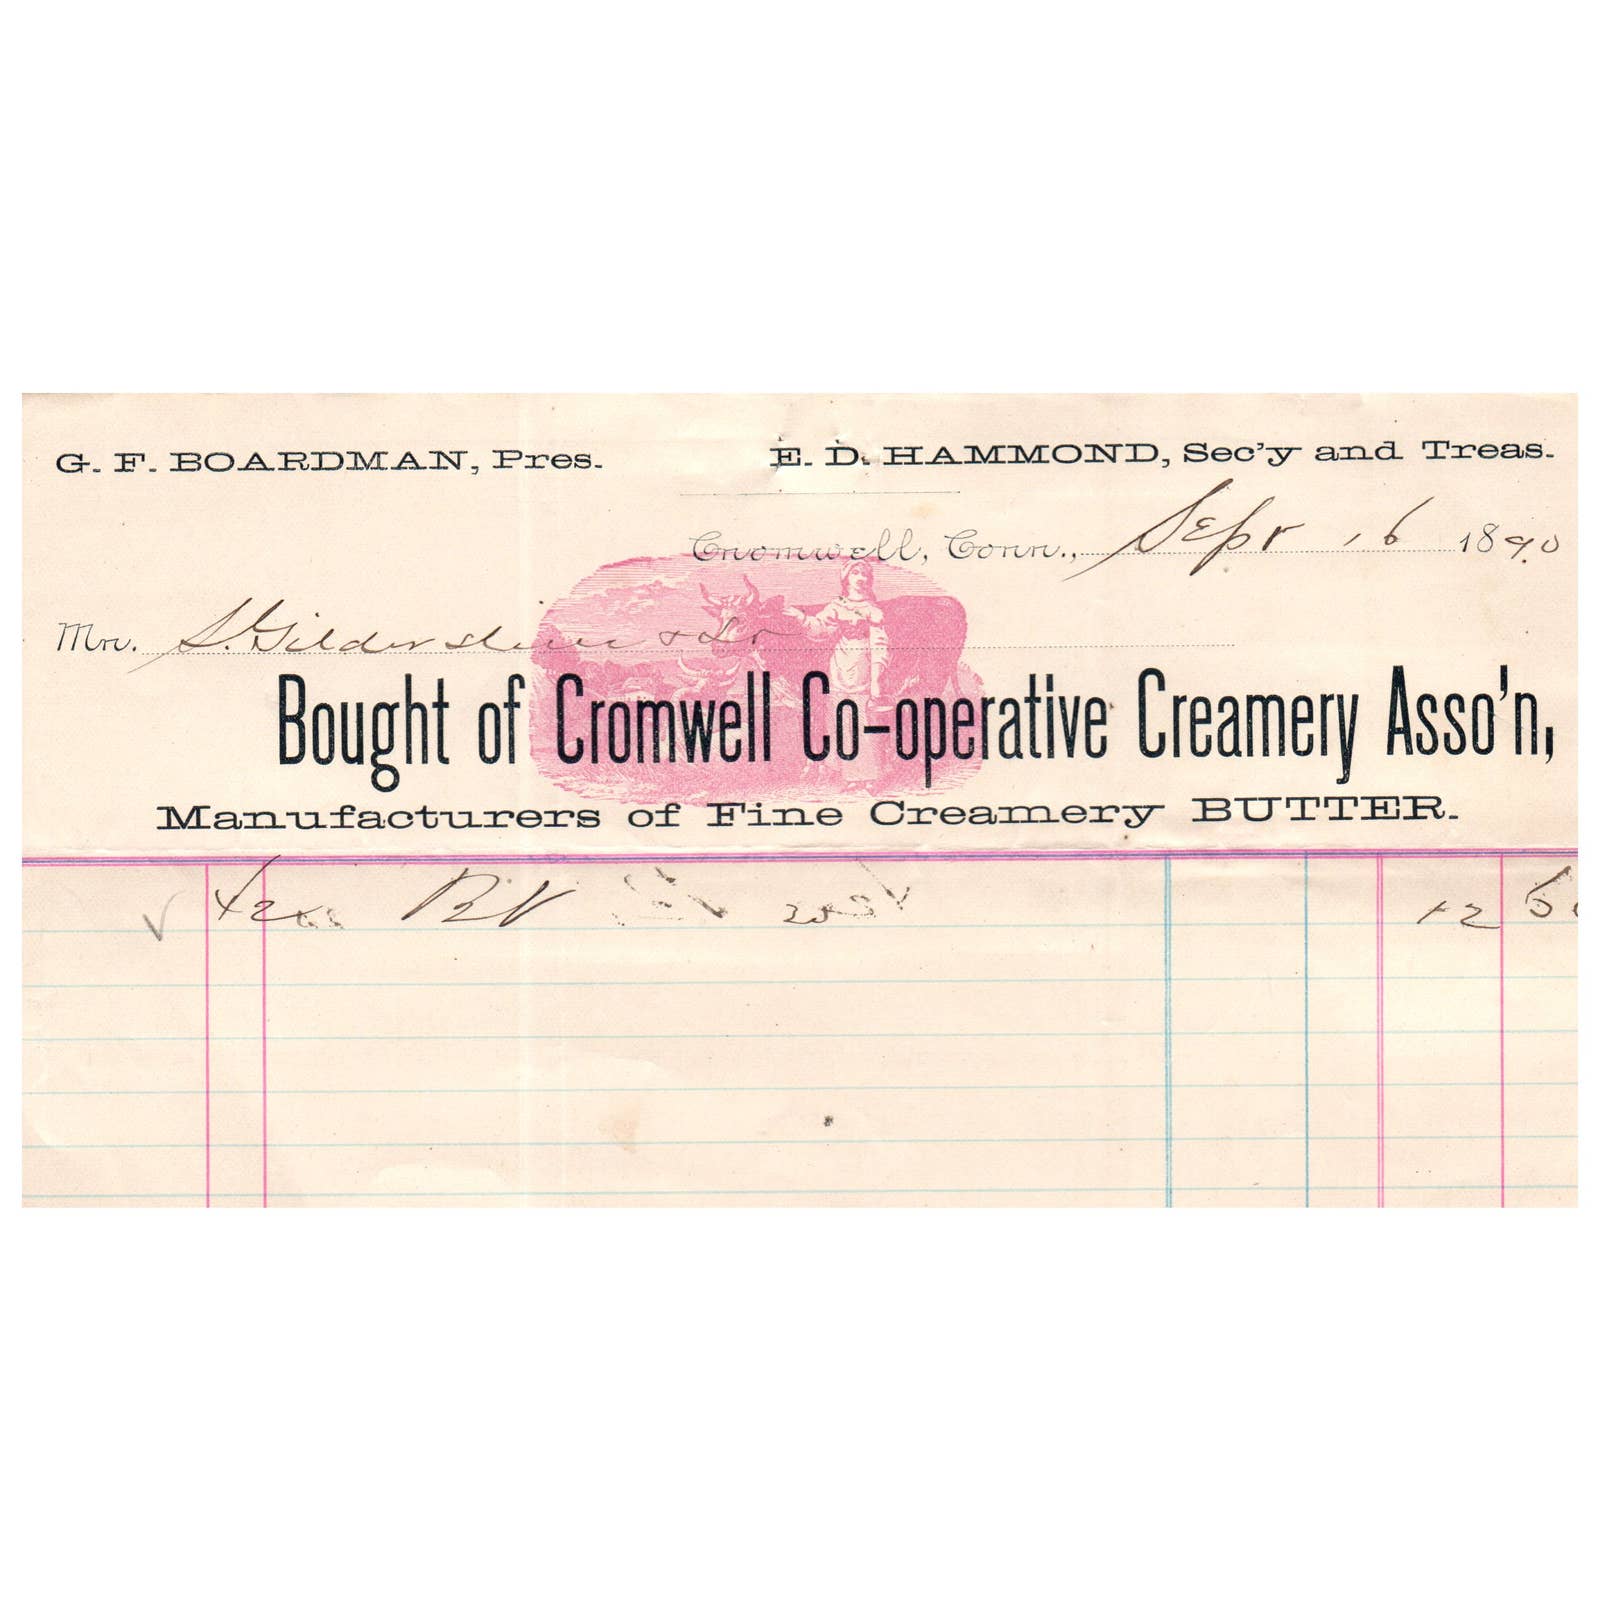 G. F. BOARDMAN, Pres. E. D. HAMMOND, Sec'y and Treas.
Cromwell, Conn., Sept 16 1890
Mr. S. Gildersleeve &
Bought of Cromwell Co-operative Creamery Asso'n,
Manufacturers of Fine Creamery BUTTER.
12